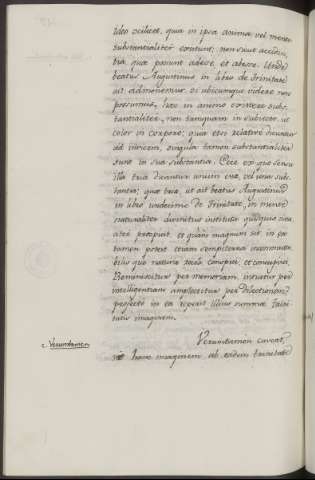 ideo scilicet, quia in ipsa anima vel mente
substantialiter existunt; non sicut acciden,
tia, quæ possunt adesse, et abesse. Unde
beatus Augustinus in libro de Trinitate
ait: admonemur, si utcumque videre non
possumus, hæc in animo existere subs,
tantialiter, non tanquam in subiecto, ut
color in corpore; quia etsi relative dicuntur
ad invicem, singula tamen substantialiter
sunt in sua substantia. Ecce ex quo sensu
illa tria dicantur unum esse, vel una subs,
tantia; quæ tria, ut ait beatus Augustinus
in libro undecimo de Trinitate, in mente
naturaliter divinitus instituta quisquis viva
citer perspicit, et quàm magnum sit in ea
tamen potest etiam sempiterna immuta
bilis que natura recoli, conspici, et concupisci.
Reminiscitur per memoriam, intuetur per
intelligentiam, amplectitur per dilectionem;
profecto in ea reperit illius summæ trini
tatis imaginem.
Verumtamen caveat,
ne hanc imaginem ab eadem trinitate
c. Verumtamen